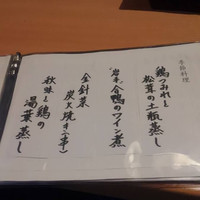 季節料理
鶏つみれと
松茸の土瓶蒸し
岩手合鴨のワイン煮
金針菜
炭火焼き
秋鮭と鶏の
湯葉蒸し